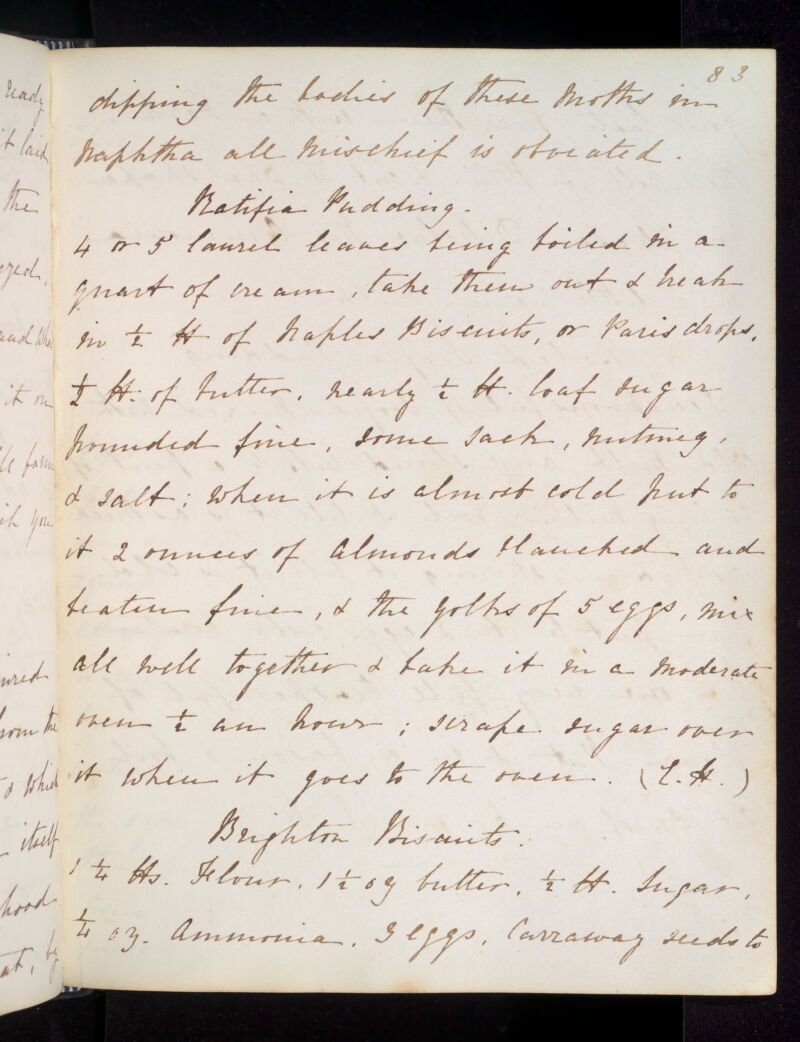 83
dipping the bodies of these moths in
Naphtha all mischief is obviated.
Ratifia Pudding.
4 or 5 laurel leaves being boiled in a
quart of cream, take them out & break
in ½ lb of Naples Biscuits, or Paris drops,
½ lb. of butter, nearly ½ lb. loaf sugar
pounded fine, some sack, nutmeg,
& salt; when it is almost cold put to
it 2 ounces of Almonds blanched and
beaten fine, & the yolks of 5 eggs, mix
all well together & bake it in a moderate
oven ½ an hour; scrape sugar over
it when it goes to the oven. (
Brighton Biscuits.
1 ¼ lbs. Flour, 1 ½ oz butter, ½ lb. Sugar,
¼ oz. Ammonia. 3 eggs, Carraway seeds to
ready
it laid
the
it on
itself
hood